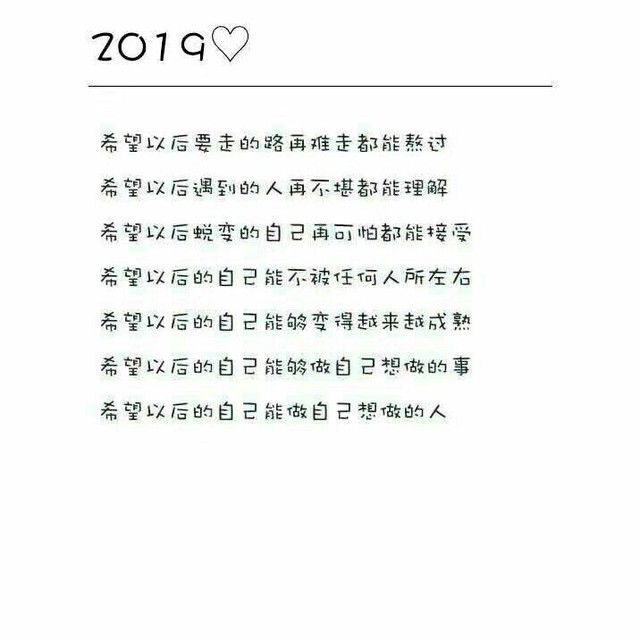 2019♡
希望以后要走的路再难走都能熬过
希望以后遇到的人再不堪都能理解
希望以后蜕变的自己再可怕都能接受
希望以后的自己能不被任何人所左右
希望以后的自己能够变得越来越成熟
希望以后的自己能够做自己想做的事
希望以后的自己能做自己想做的人